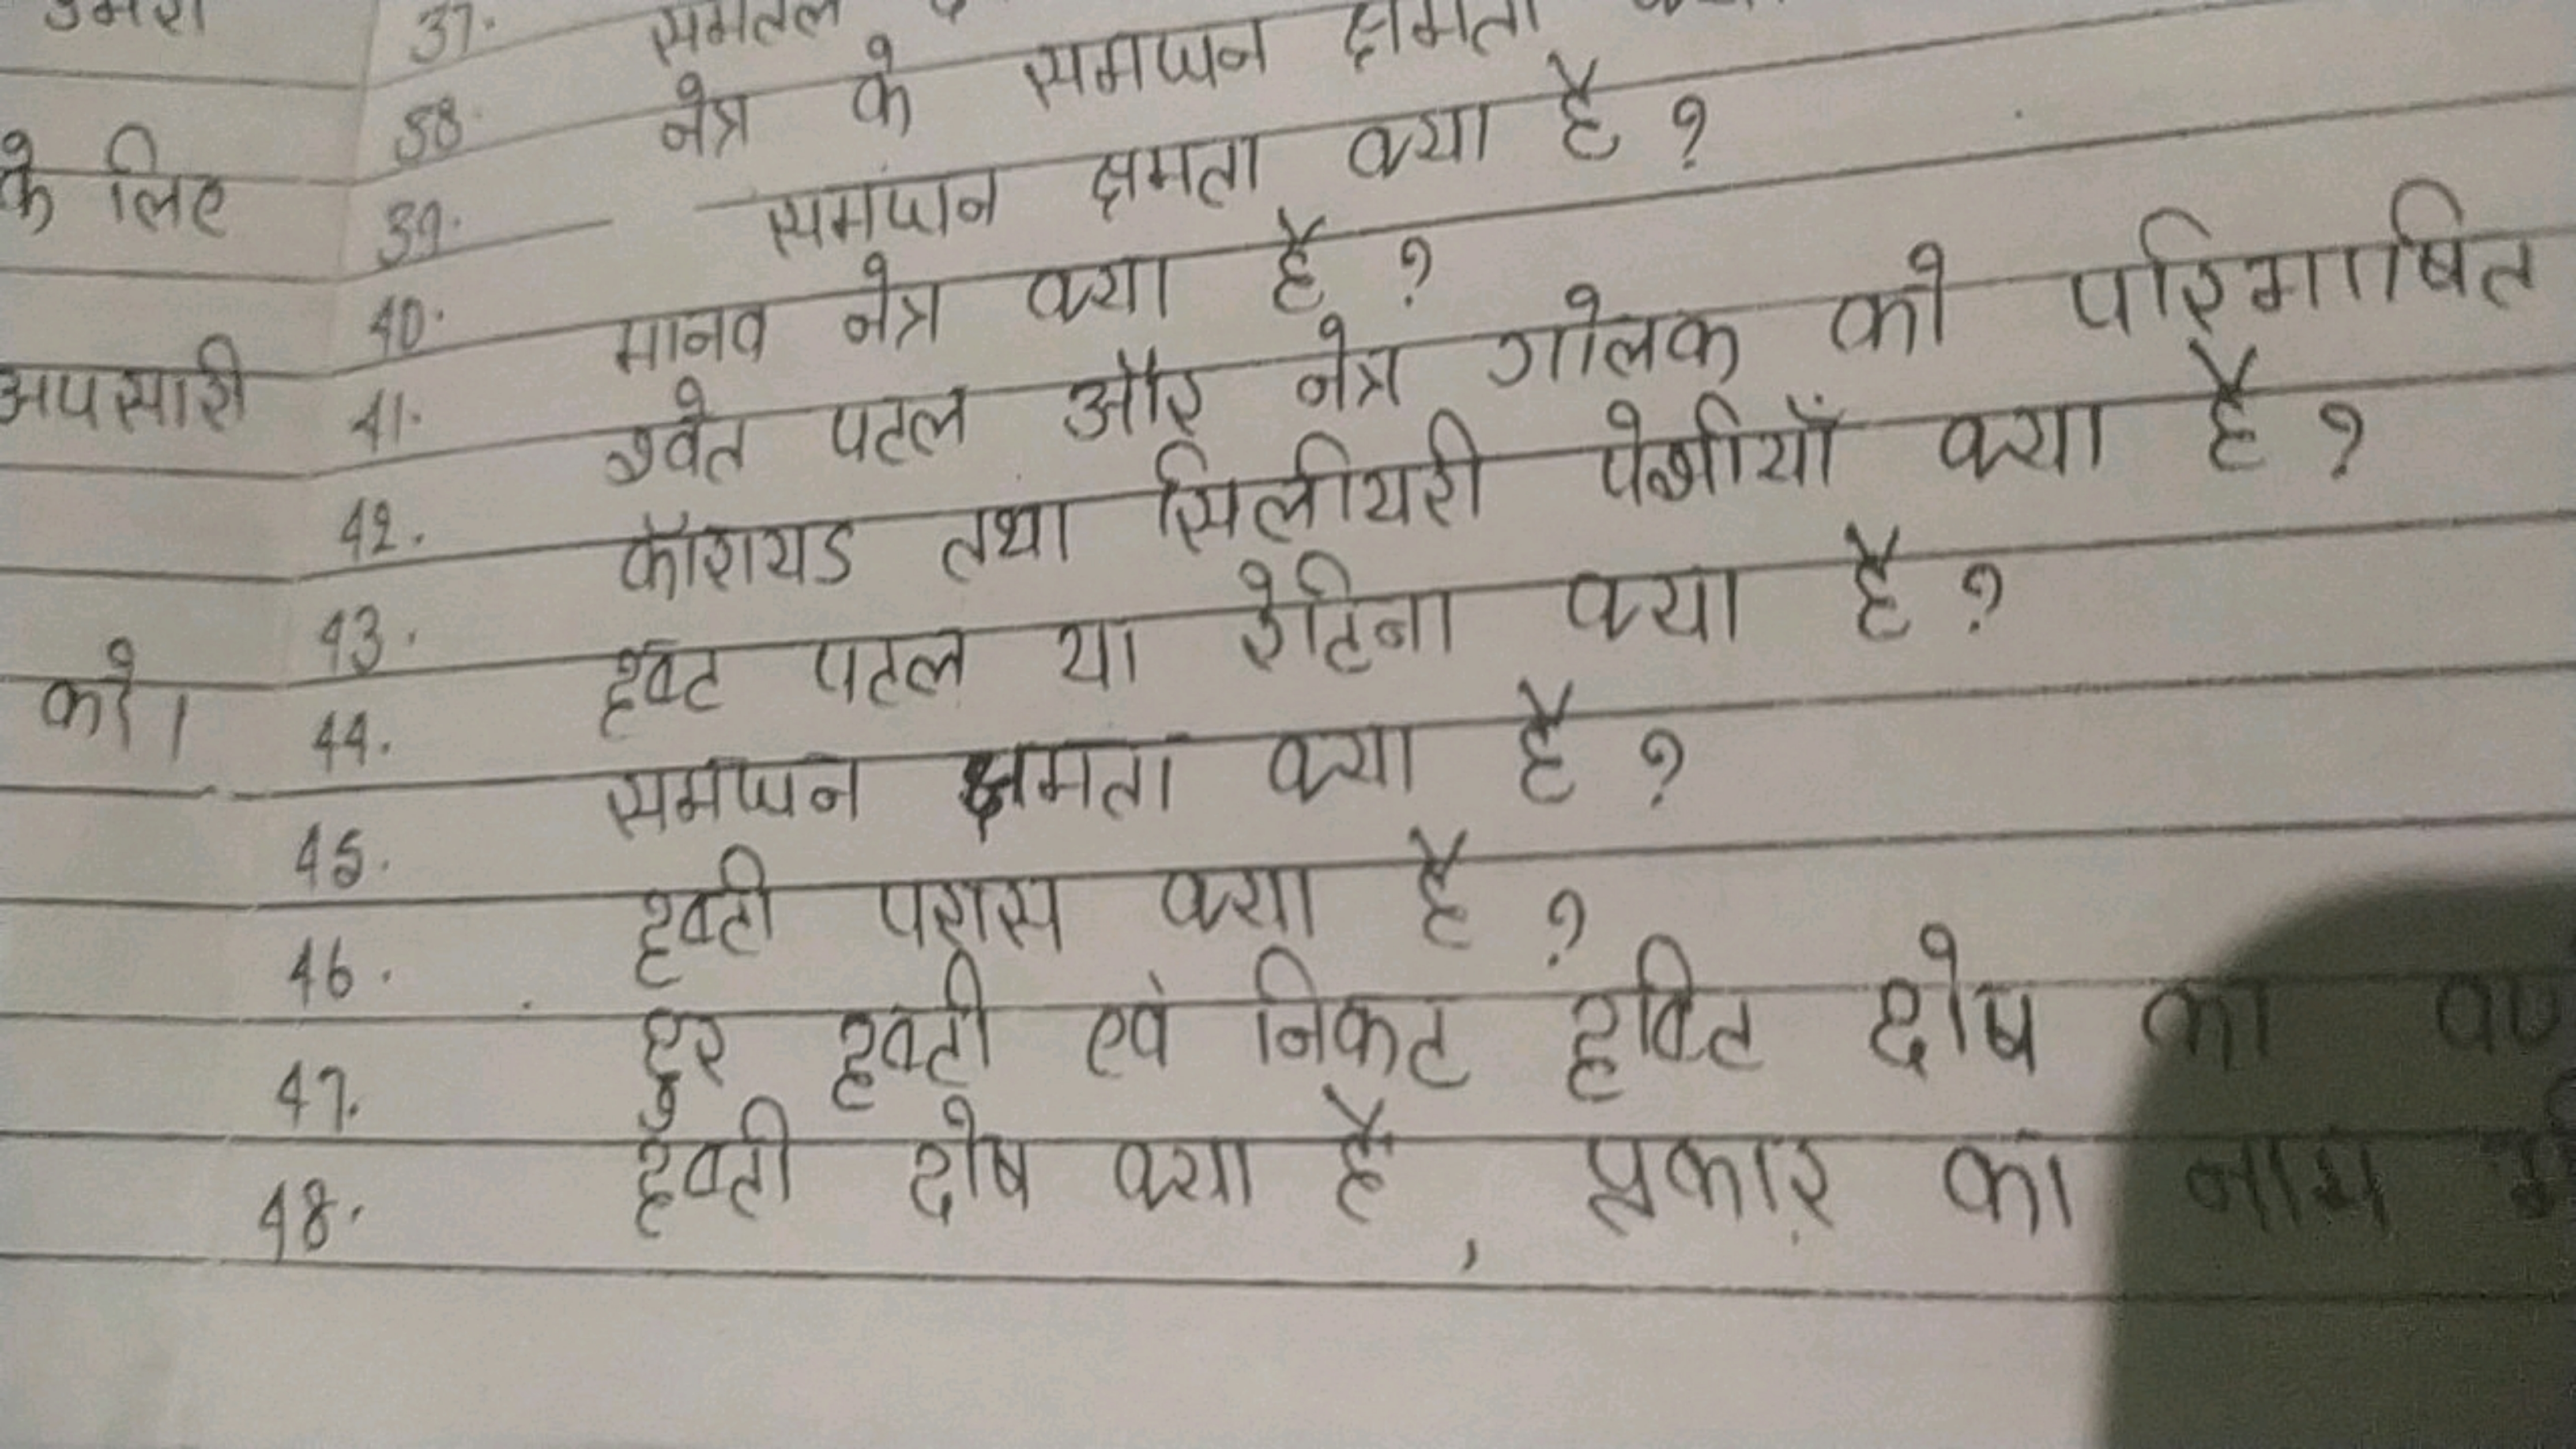 37. समतल
38. नेत्र के समंजन क्षमता
के लिए
39. समंजन क्षमता क्या है ?
40. मानव नेत्र क्या है ?
अपसारी
41. श्वेत पटल और नेत्र गोलक को परिभाषित
42. कॉरायड तथा सिलीयरी पेशीयाँ क्या है ?
43. दृष्ट पटल या रेटिना क्या है ?
करे।
44. समंजन क्षमता क्या है ?
45. दृष्टी परास क्या है ?
46. दुर दृष्टी एवं निकट दृष्टि दोष का
47. दृष्टी दोष क्या है, प्रकार का नाम
48.